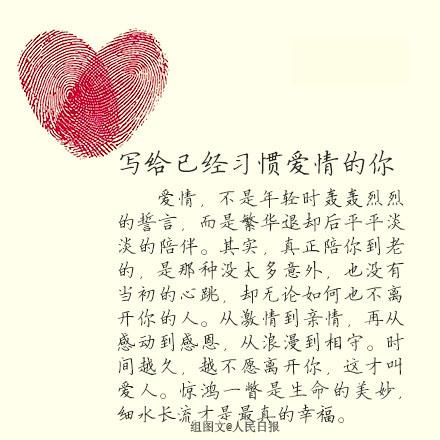 写给已经习惯爱情的你
爱情，不是年轻时轰轰烈烈
的誓言，而是繁华退却后平平淡
淡的陪伴。其实，真正陪你到老
的，是那种没太多意外，也没有
当初的心跳，却无论如何也不离
开你的人。从激情到亲情，再从
感动到感恩，从浪漫到相守。时
间越久，越不愿离开你，这才叫
爱人。惊鸿一瞥是生命的美妙，
细水长流才是最真的幸福。
组图文@人民日报